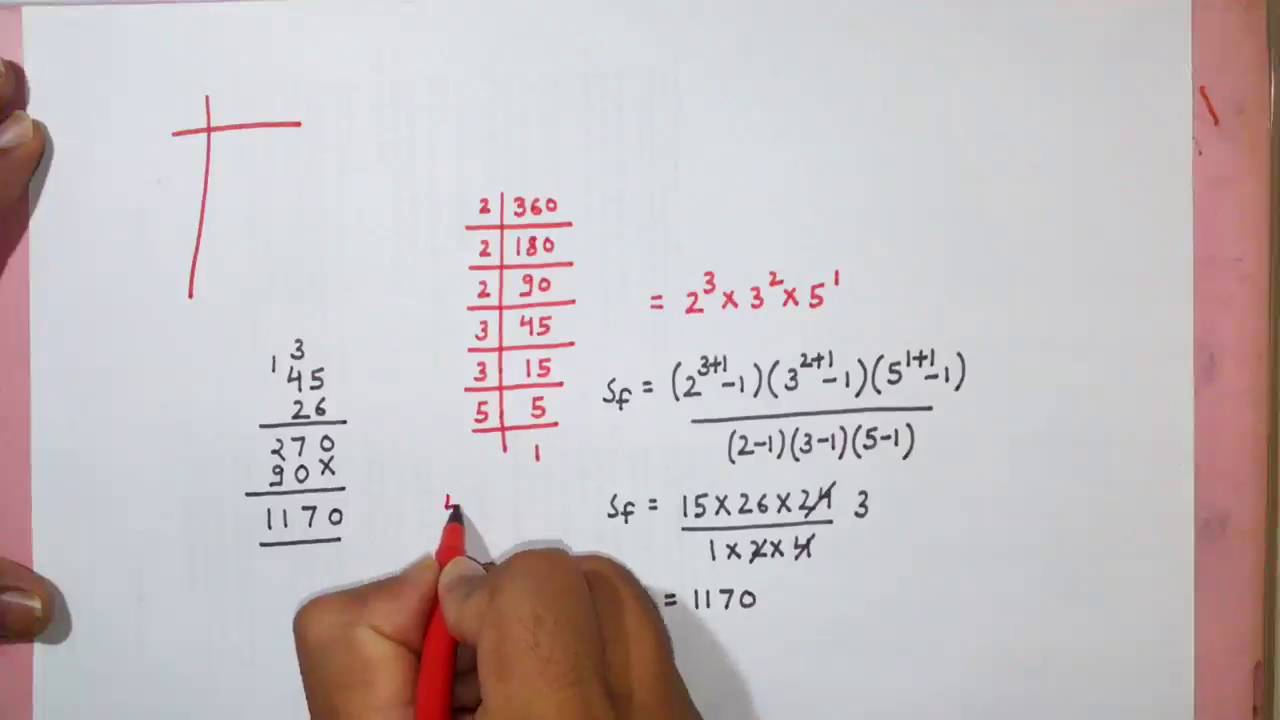 2 | 360
2 | 180
2 | 90
3 | 45
3 | 15
5 | 5
1
= 2³ × 3² × 5¹
Sf = (2³⁺¹-1)(3²⁺¹-1)(5¹⁺¹-1)
(2-1)(3-1)(5-1)
Sf = 15 × 26 × 24 3
1 × 2 × 4
= 1170
3
1
45
26
270
90×
1170